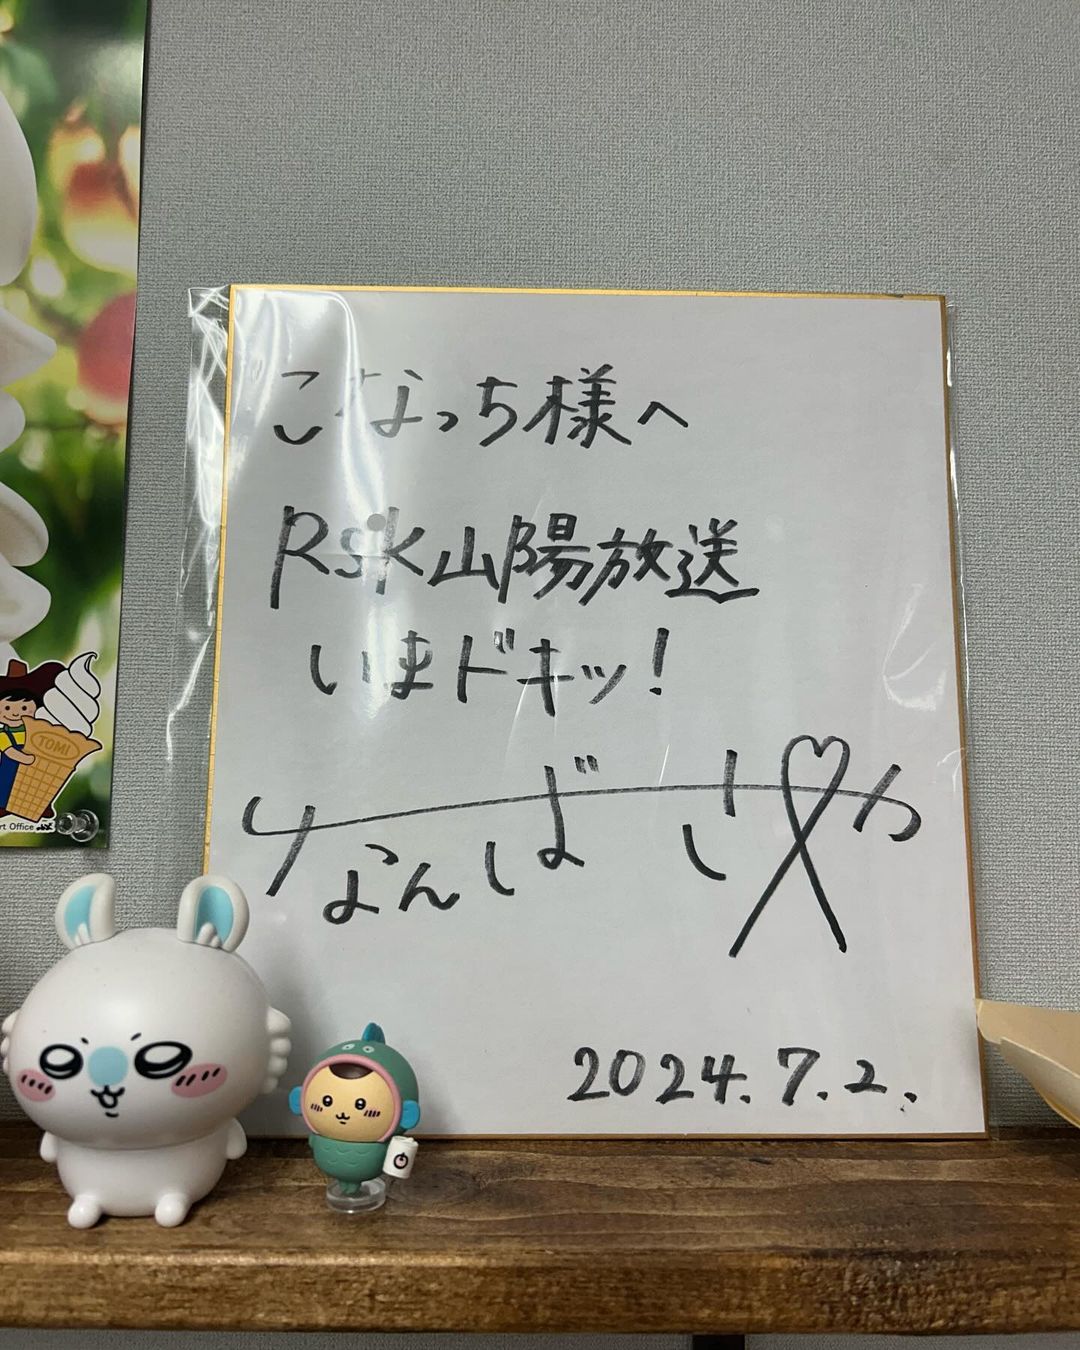 TOMI
rt Office
こなっち様へ
RSK山陽放送
いまドキッ!
なんば
2024.7.2.